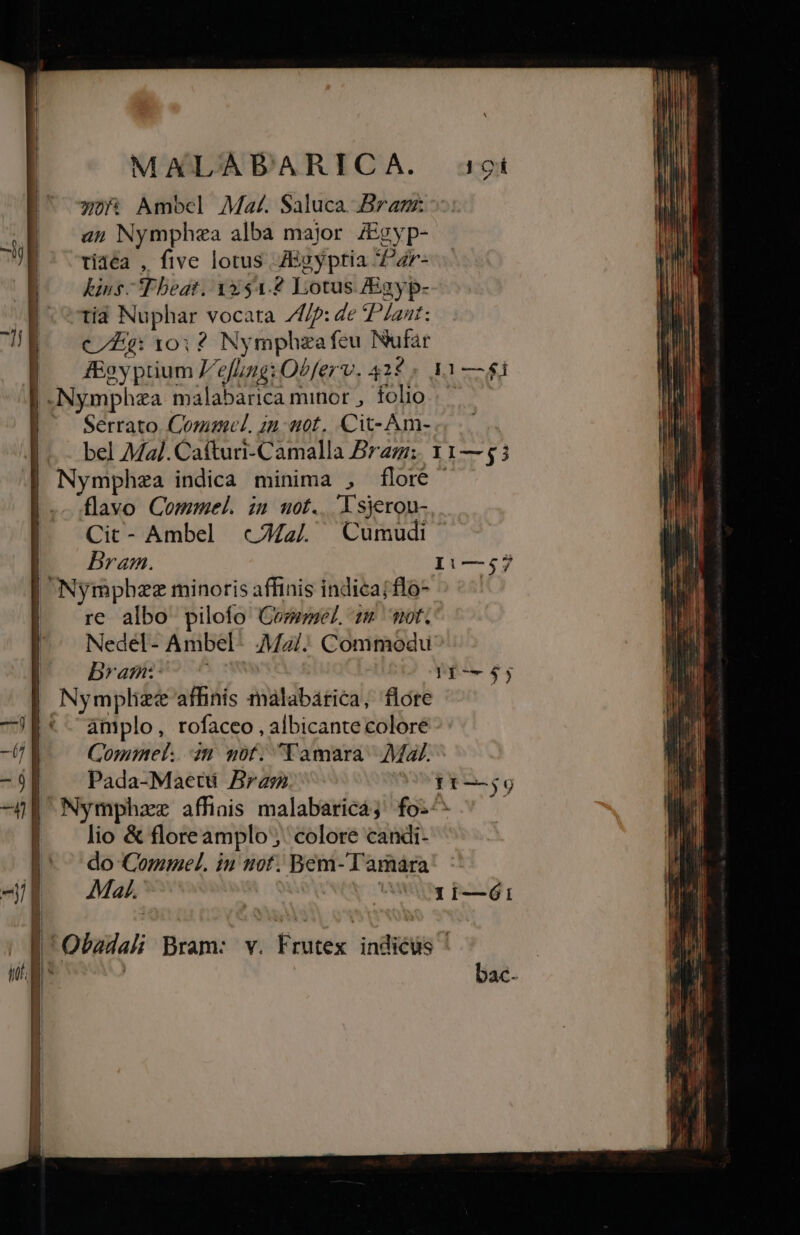 MALABARICA. 191
not. Ambel Mal. Saluca Bram:
an Nymphæa alba major Ægyp-
tiaca, sive lotus Ægyptia Par-
kins. Theat. 1251.? Lotus Ægyp-
tia Nuphar vocata Alp: de Plant:
Æg: 103? Nymphæa seu Nufar
Ægyptium Vesling: Observ. 42?. 11—51
Nymphæa malabarica minor, folio
Serrato Commel. in not. Cit-Am-
bel Mal. Casturi-Camalla Bram: 11—53
Nymphæa indica minima, flore
flavo Commel. in not. Tsjerou-
Cit-Ambel Mal. Cumudi
Bram. 11—57
Nymphææ minoris affinis indica; flo-
re albo piloso Commel. in not.
Nedel-Ambel Mal: Commodu
Bram: 11—55
Nymphææ affinis malabarica, flore
amplo, rosaceo, albicante colore
Commel. in not. Tamara Mal.
Pada-Maetu Bram. 11—59
Nymphææ affinis malabarica; fo-
lio & flore amplo, colore candi-
do Commel. in not. Bem-Tamara
Mal. 11—61
Obadali Bram: v. Frutex indicus
bac-